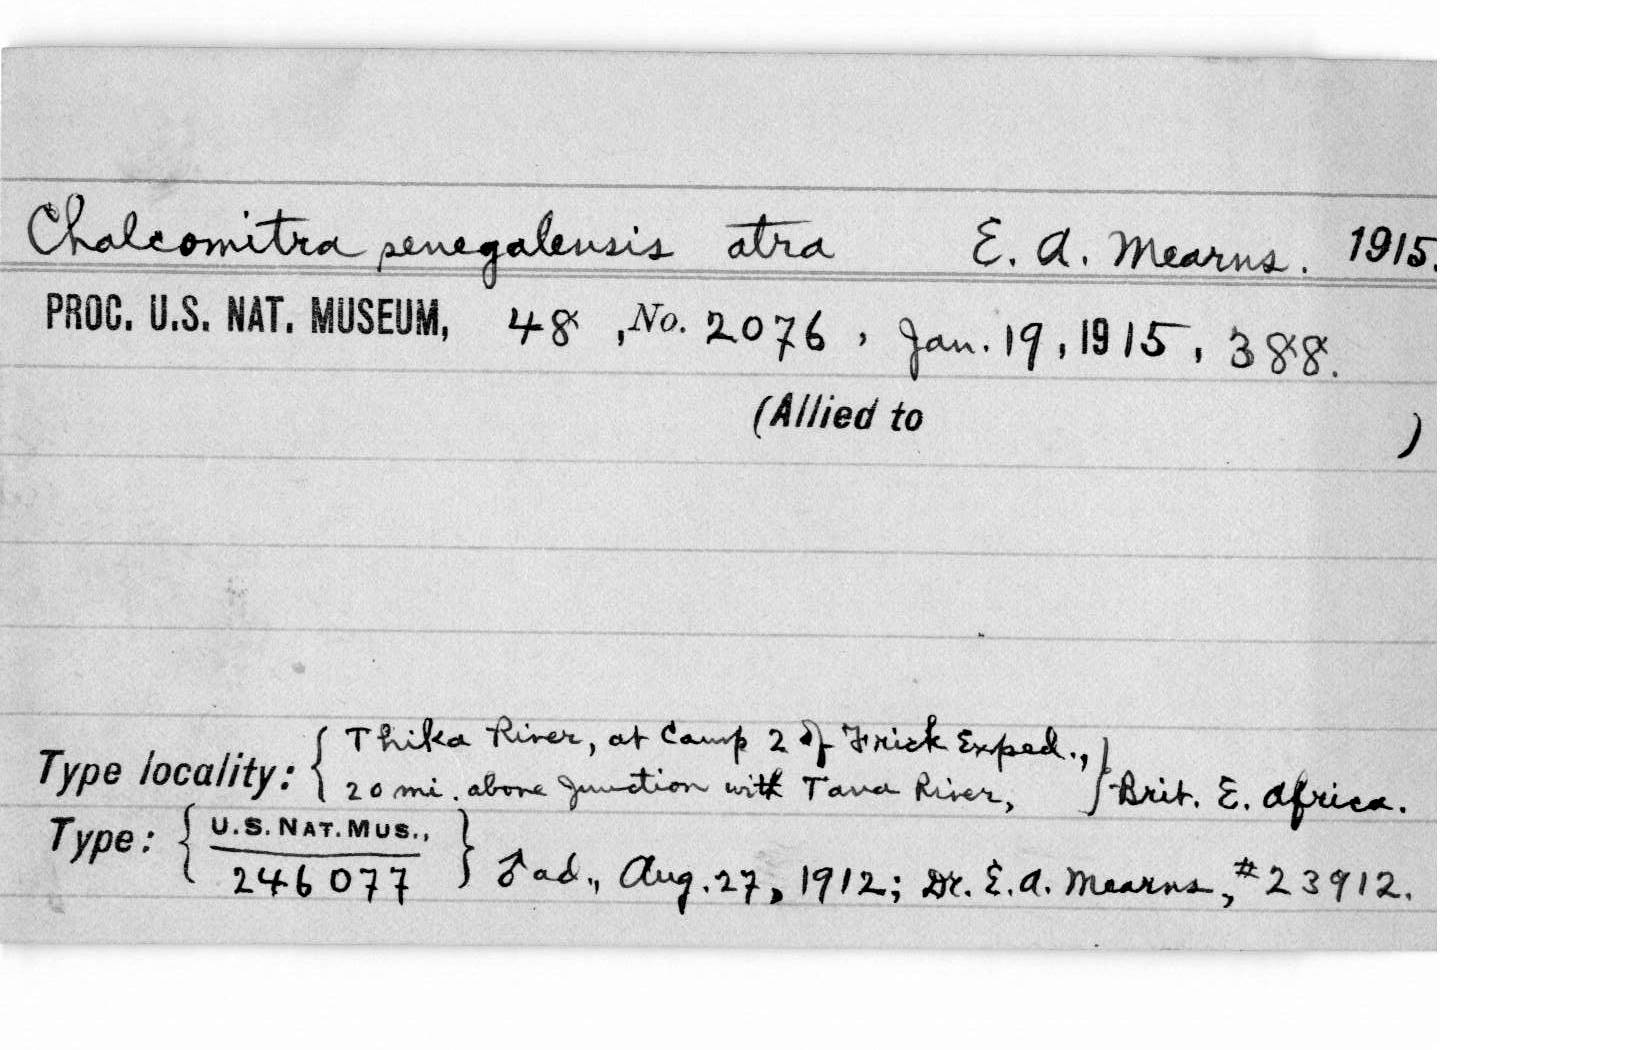 Chalcomitra senegalensis atra E. A. Mearns. 1915.
PROC. U.S. NAT. MUSEUM, 48, No. 2076, Jan. 19, 1915, 388.
(Allied to )
Type locality: { Thika River, at Camp 2 of Frick Exped.,
20 mi. above junction with Tana River, } Brit. E. Africa.
Type: { U.S. NAT. MUS.,
246077 } ♂ ad., Aug. 27, 1912; Dr. E. A. Mearns, #23912.